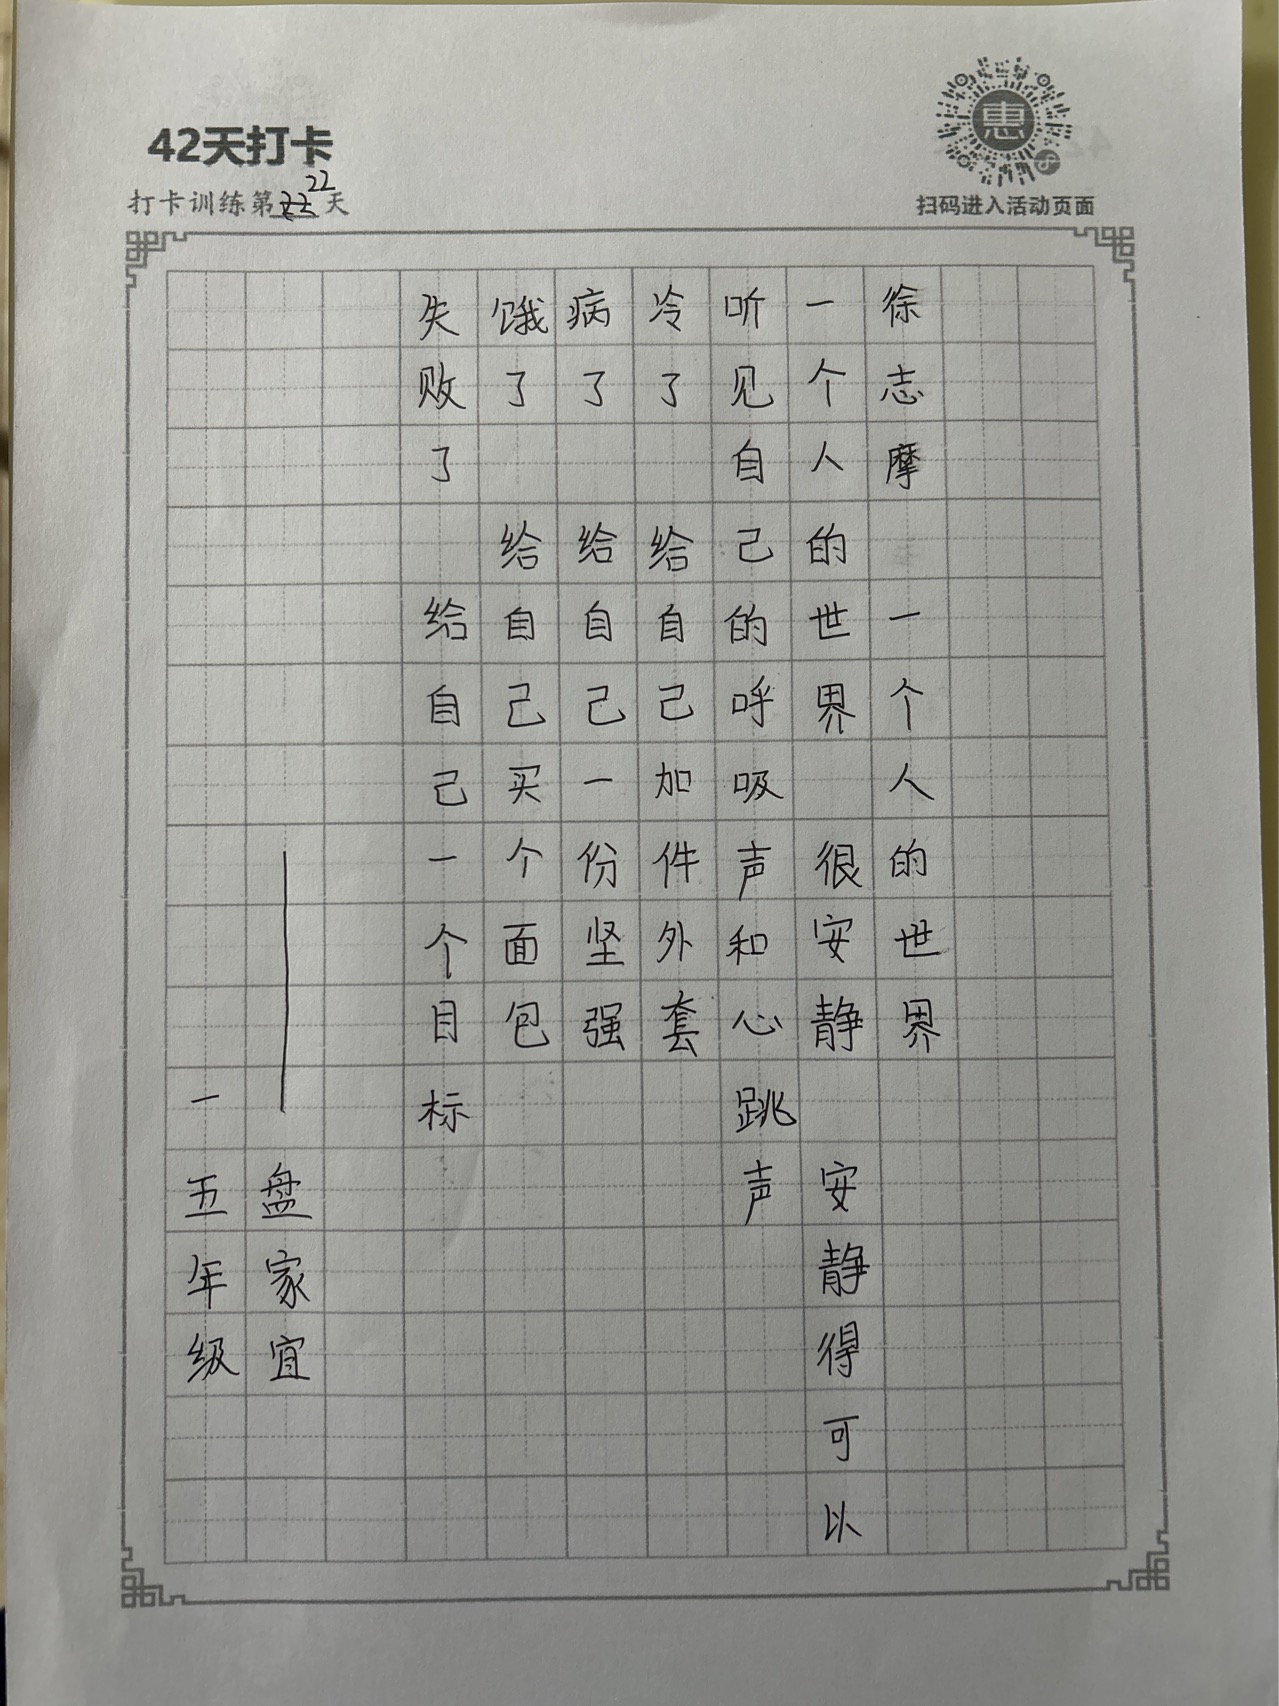 42天打卡
打卡训练第22天
惠
扫码进入活动页面
徐志摩 一个人的世界
一个人的世界 很安静 安静得可以
听见自己的呼吸声和心跳声
冷了 给自己加件外套
病了 给自己一份坚强
饿了 给自己买个面包
失败了 给自己一个目标
——盘家宜
一五年级